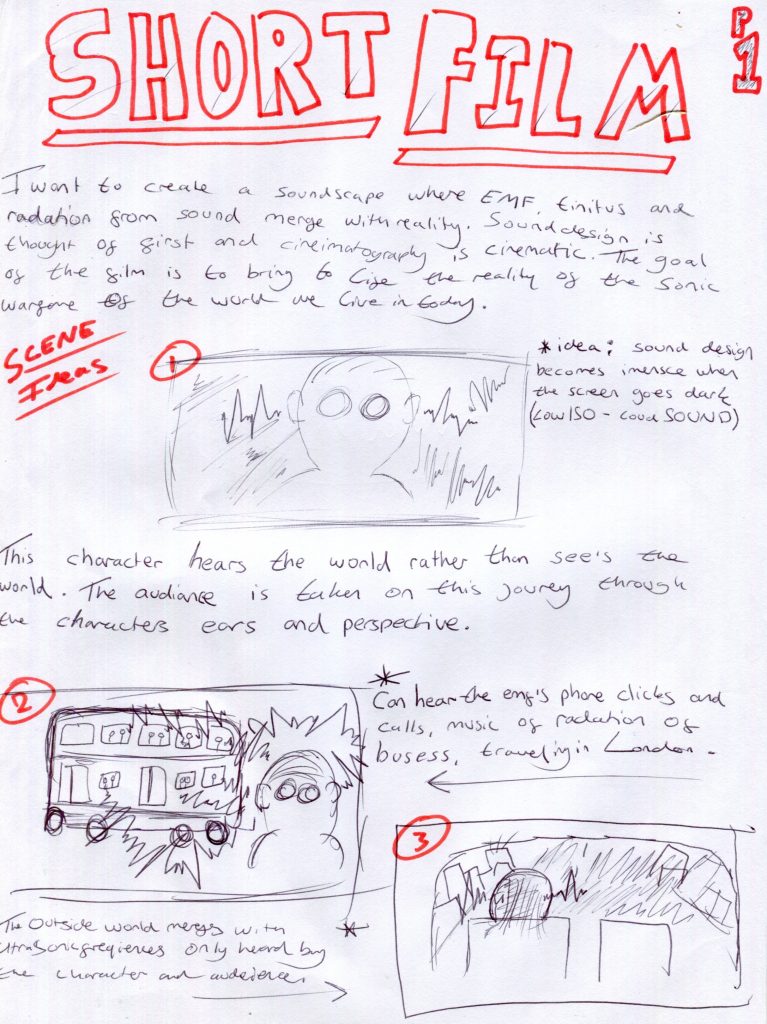 SHORT FILM
P1
I want to create a soundscape where EMF, tinitus and
radation from sound merge with reality. Sound design is
thought of first and cineimatography is cinematic. The goal
of the film is to bring to life the reality of the Sonic
warfare of the world we live in today.
SCENE
Ideas
1
* idea: sound design
becomes imensce when
the screen goes dark
(Low ISO - Loud SOUND)
This character hears the world rather than see's the
world. The audiance is taken on this jourey through
the characters ears and perspective.
2
*
Can hear the emf's phone clicks and
calls, music of radation of
busess, traveling in London -
3
The outside world merges with *
ultraSonic freqiences only heard by
the character and audeience.